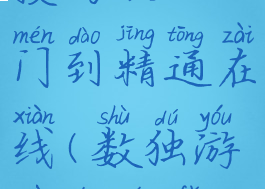 mén dào jīng tōng zài
门到精通在
xiàn shù dú yóu
线(数独游